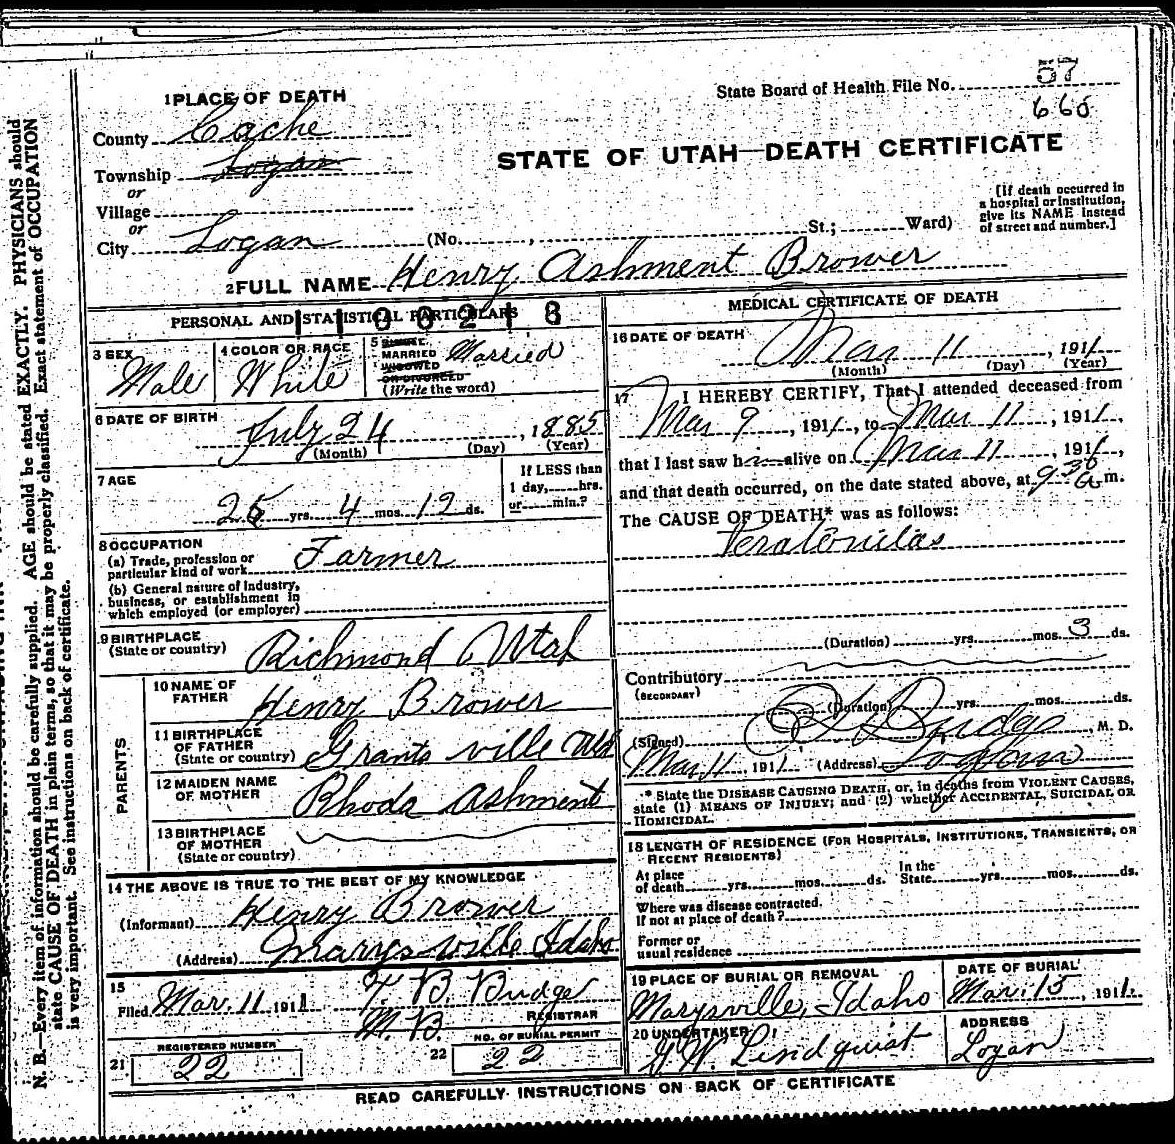 57
State Board of Health File No. 
665
1 PLACE OF DEATH
County Cache
STATE OF UTAH—DEATH CERTIFICATE
Township Logan
or
Village
or
City Logan (No. , St.; Ward)
[If death occurred in
a hospital or institution,
give its NAME instead
of street and number.]
2 FULL NAME Henry Ashment Brower
PERSONAL AND STATISTICAL PARTICULARS
3 SEX
Male
4 COLOR OR RACE
White
5 SINGLE.
MARRIED
WIDOWED
OR DIVORCED
(Write the word)
Married
6 DATE OF BIRTH
July 24 , 1885
(Month) (Day) (Year)
7 AGE
25 yrs. 4 mos. 12 ds.
If LESS than
1 day, hrs.
or min.?
8 OCCUPATION
(a) Trade, profession or
particular kind of work Farmer
(b) General nature of industry,
business, or establishment in
which employed (or employer)
9 BIRTHPLACE
(State or country) Richmond Utah
PARENTS
10 NAME OF
FATHER Henry Brower
11 BIRTHPLACE
OF FATHER
(State or country) Grantsville Utd
12 MAIDEN NAME
OF MOTHER Rhoda Ashment
13 BIRTHPLACE
OF MOTHER
(State or country)
14 THE ABOVE IS TRUE TO THE BEST OF MY KNOWLEDGE
(Informant) Henry Brower
(Address) Marysville Idaho
15
Filed Mar. 11 1911 T. B. Budge
M.D. REGISTRAR
21 REGISTERED NUMBER
22
22 NO. OF BURIAL PERMIT
22
MEDICAL CERTIFICATE OF DEATH
16 DATE OF DEATH
Mar 11 , 1911
(Month) (Day) (Year)
17 I HEREBY CERTIFY, That I attended deceased from
Mar 9 , 1911, to Mar 11 , 1911,
that I last saw him alive on Mar 11 , 1911,
and that death occurred, on the date stated above, at 9 30 a m.
The CAUSE OF DEATH* was as follows:
(Duration) yrs. mos. 3 ds.
Contributory
(SECONDARY)
(Duration) yrs. mos. ds.
(Signed) Budge , M. D.
Mar 11 , 1911 (Address) Logan
* State the DISEASE CAUSING DEATH, or, in deaths from VIOLENT CAUSES,
state (1) MEANS OF INJURY; and (2) whether ACCIDENTAL, SUICIDAL OR
HOMICIDAL.
18 LENGTH OF RESIDENCE (FOR HOSPITALS, INSTITUTIONS, TRANSIENTS, OR
RECENT RESIDENTS)
At place
of death yrs. mos. ds.
In the
State yrs. mos. ds.
Where was disease contracted.
If not at place of death?
Former or
usual residence
19 PLACE OF BURIAL OR REMOVAL
Marysville, Idaho
DATE OF BURIAL
Mar. 15 , 1911.
20 UNDERTAKER
G W Lindquist
ADDRESS
Logan
READ CAREFULLY INSTRUCTIONS ON BACK OF CERTIFICATE
N. B.—Every item of information should be carefully supplied. AGE should be stated EXACTLY. PHYSICIANS should
state CAUSE OF DEATH in plain terms, so that it may be properly classified. Exact statement of OCCUPATION
is very important. See instructions on back of certificate.